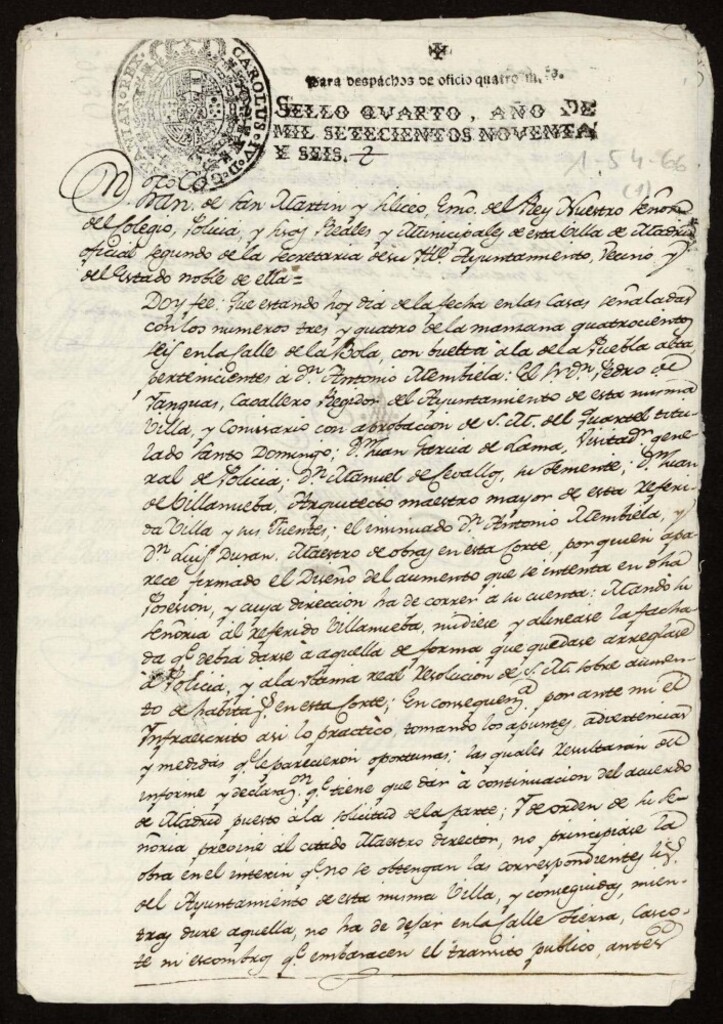 CAROLUS IV D G
HISPANIAR REX
Para despachos de oficio quatro mrs.
SELLO QVARTO, AÑO DE
MIL SETECIENTOS NOVENTA
Y SEIS.
1-54-66
(1)
Dn. de San Martin y Eliceo, Emo. del Rey Nuestro Señor
del Colegio, Policia, y Reales y Municipales de esta Villa de Madrid
oficial segundo de la Secretaria de su Ille. Ayuntamiento, Vecino y
del Estado noble de ella=
Doy fee: Que estando hoy dia de la fecha en las Casas señaladas
con los numeros tres y quatro de la manzana quatrocientos
seis en la Calle de la Bola, con buelta á la de la Puebla alta,
pertenicientes á Dn. Antonio Membiela: El Sr. Dn. Pedro de
Yanguas, Cavallero Regidor del Ayuntamiento de esta misma
Villa, y Comissario con aprobacion de S. M. del Quartel titu-
lado Santo Domingo; Dn. Juan Garcia de Lama, Visitador gene-
ral de Policia; Dn. Manuel de Cevallos, su Temente; Dn. Juan
de Villanueba, Arquitecto maestro mayor de esta referi-
da Villa y sus Fuentes; el insinuado Dn. Antonio Membiela, y
Dn. Luis Duran, Maestro de obras en esta Corte, por quien apa-
rece firmado el Diseño del aumento que se intenta en dha
Posesion, y cuya direccion ha de correr a su cuenta: Mando su
señoria al referido Villanueba, midiese y alinease la facha
da qe. debia darse á aquella de forma que quedase arreglada
á Policia, y ala ultima real Resolucion de S. M. sobre aumen-
to de habitas. en esta Corte; En consequena. por ante mi el
Infraescrito asi lo practicó, tomando los apuntes, advertencias
y medidas qe. le parecieron oportunas; las quales resultarán del
informe y declaraon. qe. tiene que dar á continuacion del acuerdo
de Madrid puesto á la solicitud de la parte; Y de orden de su Se-
ñoria previne al citado Maestro director, no principiase la
obra en el interin qe. no se obtengan las correspondientes lis.
del Ayuntamiento de esta misma Villa, y conseguidas, mien-
tras dure aquella, no ha de dejar en la Calle tierra, Casco-
te ni escombros qe. embaracen el transito publico, antes